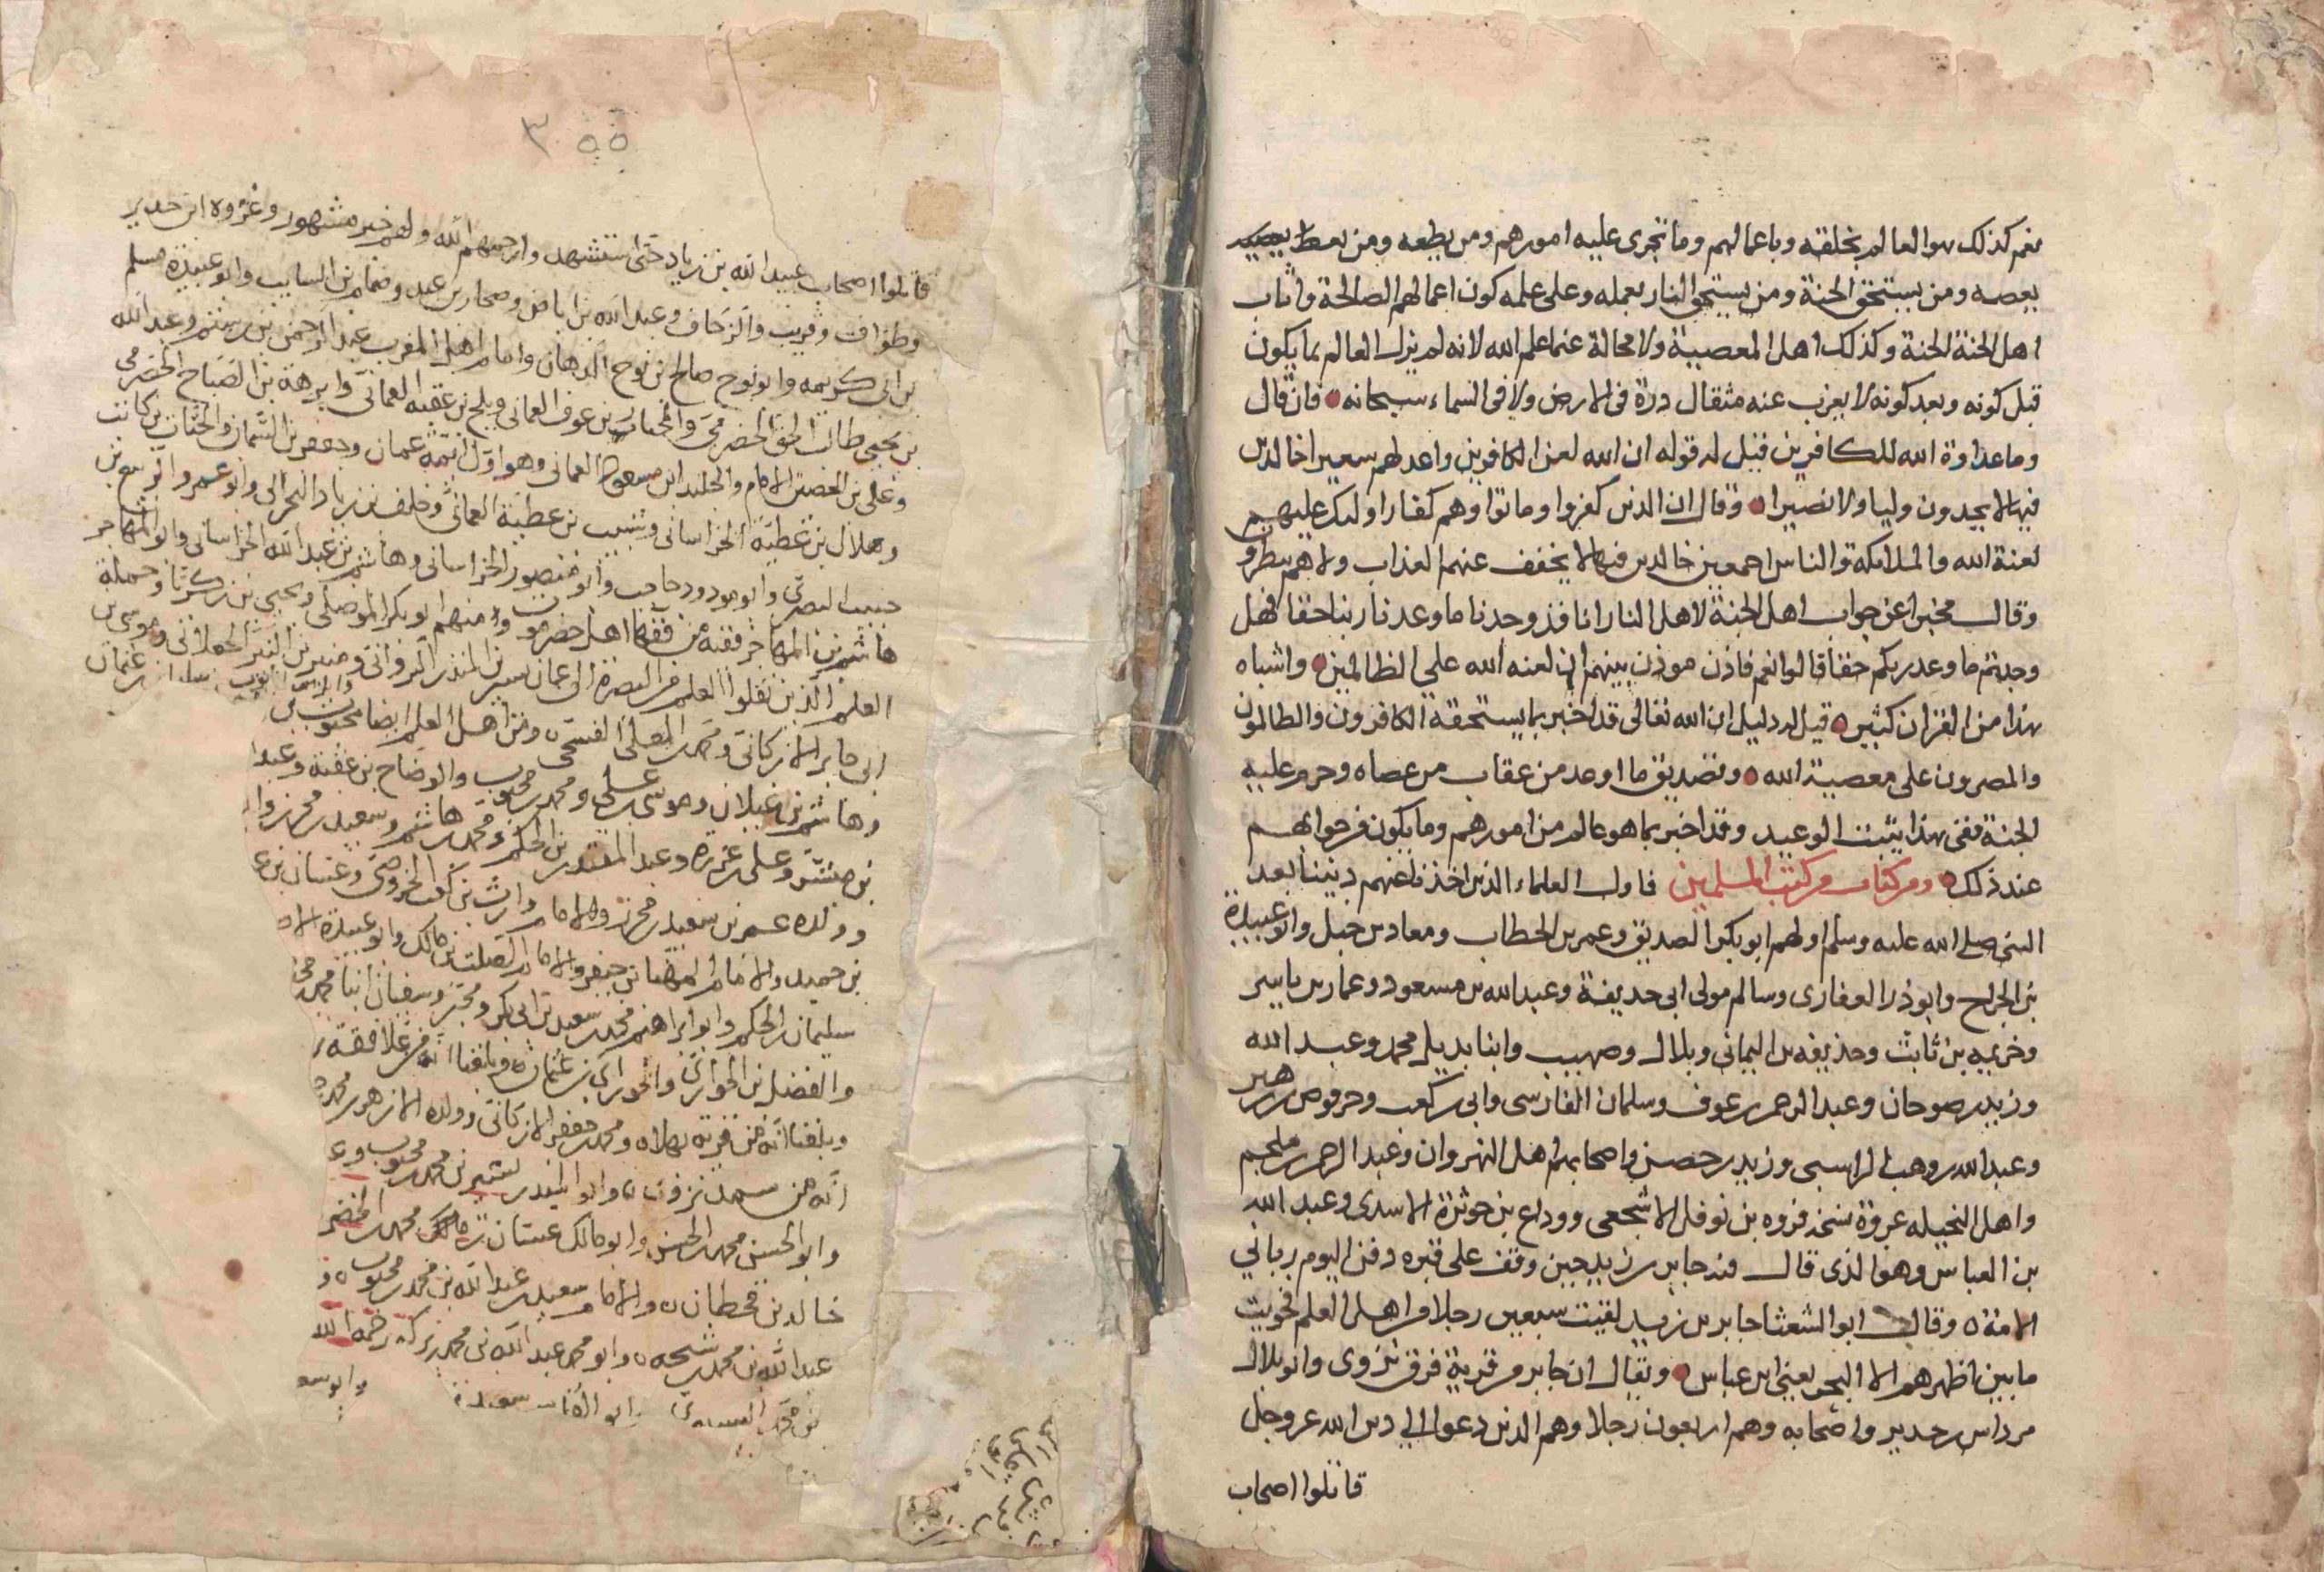 نعم كذلك هو العالم بخلقه وباعمالهم وما تجرى عليه امورهم ومن يطيعه ومن
يعصه ومن يستحق الجنة ومن يستحق النار بعمله وعلى علمه كون اعمالهم الصالحة واثاب
اهل الجنة الجنة وكذلك اهل المعصية ولا محالة عما علم الله لانه لم يزل العالم بما يكون
قبل كونه وبعد كونه لا يعزب عنه مثقال ذرة فى الارض ولا فى السماء سبحانه فان قال
وما عداوة الله للكافرين قيل له قوله ان الله لعن الكافرين واعد لهم سعيرا خالدين
فيها لا يجدون وليا ولا نصيرا وقال ان الذين كفروا وماتوا وهم كفار اوليك عليهم
لعنة الله والملايكة والناس اجمعين خالدين فيها لا يخفف عنهم العذاب ولا هم ينظرون
وقال مخبرا عن جواب اهل الجنة لاهل النار انا قد وجدنا ما وعدنا ربنا حقا فهل
وجدتم ما وعد ربكم حقا قالوا نعم فاذن موذن بينهم ان لعنه الله على الظالمين واشباه
هذا من القران كثير قيل له دليل ان الله تعالى قد اخبر بما يستحقه الكافرون والظالمون
والمصرون على معصية الله وتصديق ما اوعد من عقاب من عصاه وحرم عليه
الجنة ففى هذا يثبت الوعيد وقد اخبر بما هو عالم من امورهم وما يكون فرحوا بهم
عند ذلك ومن كتاب من كتب المسلمين فاول العلماء الذين اخذنا عنهم ديننا بعد
النبى صلى الله عليه وسلم اولهم ابو بكر الصديق وعمر بن الخطاب ومعاد بن جبل وابو عبيدة
بن الجراح وابو ذر الغفارى وسالم مولى ابى حديفة وعبد الله بن مسعود وعمار بن ياسر
وخزيمه بن ثابت وحذيفه بن اليمانى وبلال وصهيب وابنا بديل محمد وعبد الله
وزيد بن صوحان وعبد الرحمن بن عوف وسلمان الفارسى وابى بن كعب وحرقوص بن زهير
وعبد الله بن وهب الراسبى وزيد بن حصن واصحابهم اهل النهروان وعبد الرحمن بن ملجم
واهل النخيله عروة نسخة فروه بن نوفل الاشجعى ووداع بن حوثرة الاسدى وعبد الله
بن العباس وهو الذى قال فيه جابر بن زيد حين وقف على قبره دفن اليوم ربانى
الامة وقال ابو الشعثا جابر بن زيد لقيت سبعين رجلا من اهل العلم فحويت
ما بين اظهرهم الا البحر يعنى ابن عباس ويقال ان جابر من قرية فرق نزوى وابو بلال
مرداس بن حدير واصحابه وهم اربعون رجلا وهم الذين دعوا الى دين الله عز وجل
قاتلوا اصحاب
٣٥٥
قاتلوا اصحاب عبيد الله بن زياد حتى استشهدوا رحمهم الله ولهم خبر مشهور وعروه ابن حدير
وطواف وقريب والزحاف وعبد الله بن اباض وصحار بن عبد وضمام بن السايب وابو عبيدة مسلم
بن ابى كريمه وابو نوح صالح بن نوح الدهان وامام اهل المغرب عبد الرحمن بن رستم وعبد الله
بن يحيى طالب الحق الحضرمى والمختار بن عوف العمانى وبلج بن عقبه العمانى وابرهة بن الصباح الحضرمى
وعلى بن الحصين الامام والجلندا بن مسعود العمانى وهو اول ائمة عمان وجعفر بن السمان والحتات بن كاتب
وهلال بن عطية الخراسانى وشبيب بن عطية العمانى وخلف بن زياد البحرانى وابو عمرو الربيع بن
حبيب البصرى وابو مودود حاجب وابو منصور الخراسانى وهاشم بن عبد الله الخراسانى وابو المهاجر
هاشم بن المهاجر فقيه من فقهاء اهل حضرموت ومنهم ابو بكر الموصلى ويحيى بن زكريا وحملة
العلم الذين نقلوا العلم من البصرة الى عمان بشير بن المنذر النزوانى ومنير بن النير الجعلانى وموسى بن
ابى جابر الازكانى ومحمد بن المعلى الفسحى ومن اهل العلم ايضا محبوب بن
وهاشم بن غيلان وموسى بن على ومحمد بن محبوب والوضاح بن عقبة وعبدا
بن مبشر وعلى بن عزرة وعبد المقتدر بن الحكم ومحمد بن هاشم وسعيد بن محرز وا
وولده عمر بن سعيد بن محرز والامام وارث بن كعب الخروصى وغسان بن ع
بن حميد والامام المهنا بن جيفر والامام الصلت بن مالك وابو عبيدة الا
سليمان بن الحكم وابو ابراهيم محمد بن سعيد بن ابى بكر ومحبر وسفيان ابنا محمد
والفضل بن الحوارى والحوارى بن عثمان وبلغنا انه من غلافقه
وبلغنا انه من قرية بهلاه ومحمد بن جعفر الازكانى وولده الازهر بن محمد
انه من سمد نزوى وابو المنذر بشير بن محمد بن محبوب وع
وابو الحسن محمد بن الحسن وابو مالك غسان بن محمد بن الخضر
خالد بن قحطان والامام سعيد بن عبد الله بن محمد بن محبوب
عبد الله بن محمد بن شيخه وابو محمد عبد الله بن محمد بن بركه رحمه الله